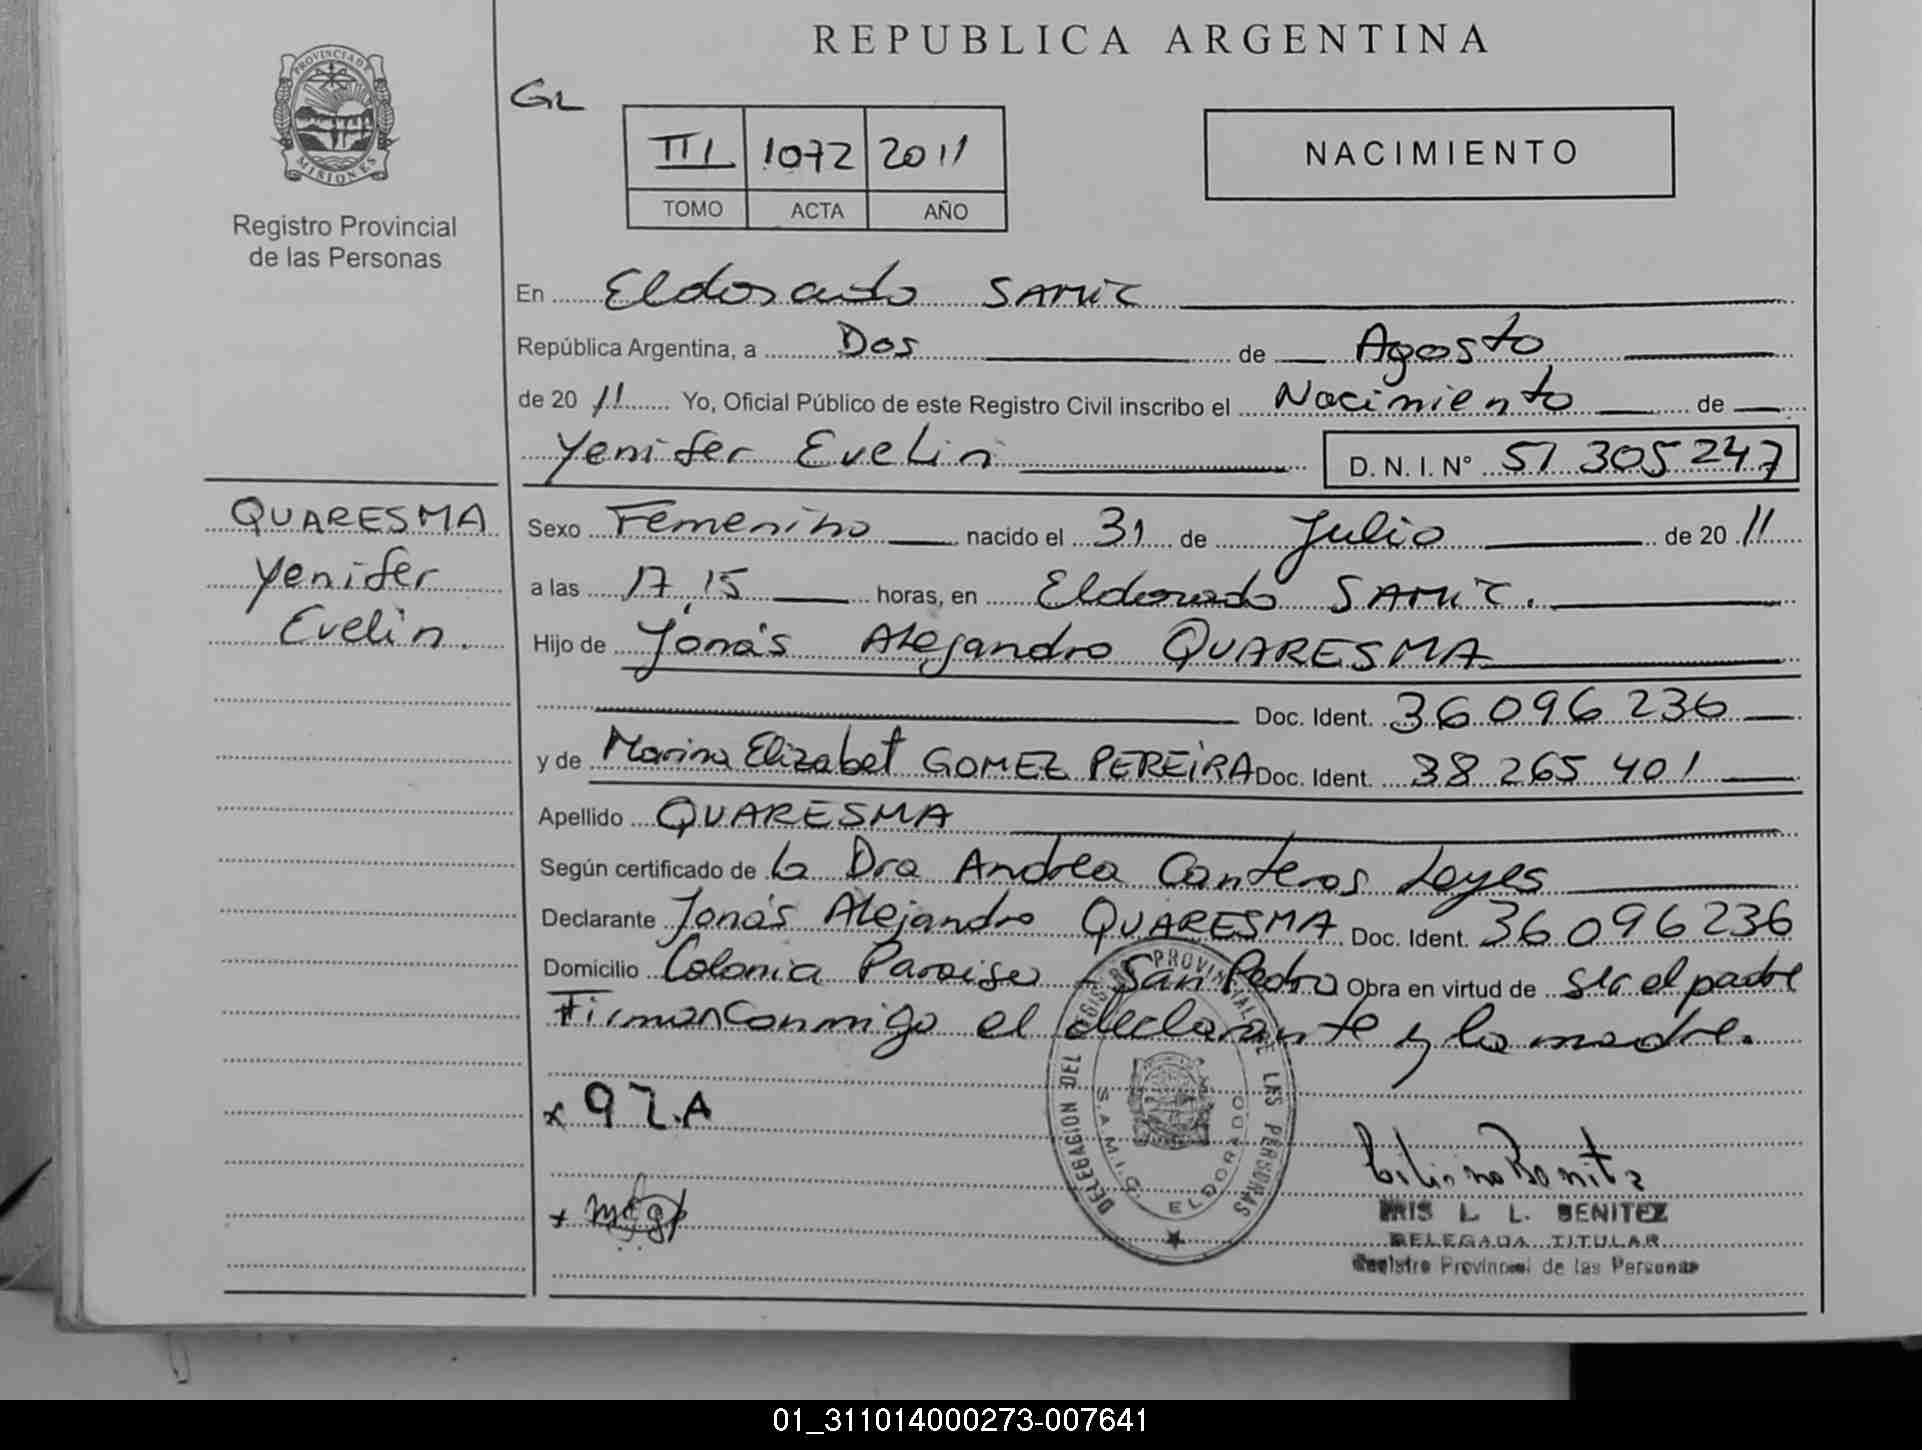 REPUBLICA ARGENTINA
PROVINCIA DE
MISIONES
Registro Provincial
de las Personas
GL
III 1072 2011
TOMO ACTA AÑO
NACIMIENTO
En Eldorado SAMIC
República Argentina, a Dos de Agosto
de 20 11 Yo, Oficial Público de este Registro Civil inscribo el Nacimiento de
Yenifer Evelin D. N. I. N° 51 305 247
QUARESMA
Yenifer
Evelin.
Sexo Femenino nacido el 31 de Julio de 20 11
a las 17,15 horas, en Eldorado SAMIC.
Hijo de Jonás Alejandro QUARESMA
Doc. Ident. 36 096 236
y de Marina Elizabet GOMEZ PEREIRA Doc. Ident. 38 265 401
Apellido QUARESMA
Según certificado de la Dra Andrea Canteros Leyes
Declarante Jonás Alejandro QUARESMA Doc. Ident. 36 096 236
Domicilio Colonia Paraiso - San Pedro Obra en virtud de ser el padre
Firman conmigo el declarante y la madre.
DELEGACION DEL REGISTRO PROVINCIAL DE LAS PERSONAS
S.A.M.I.C. ELDORADO
x
+
IRIS L. L. BENITEZ
DELEGADA TITULAR
Registro Provincial de las Personas
01_311014000273-007641